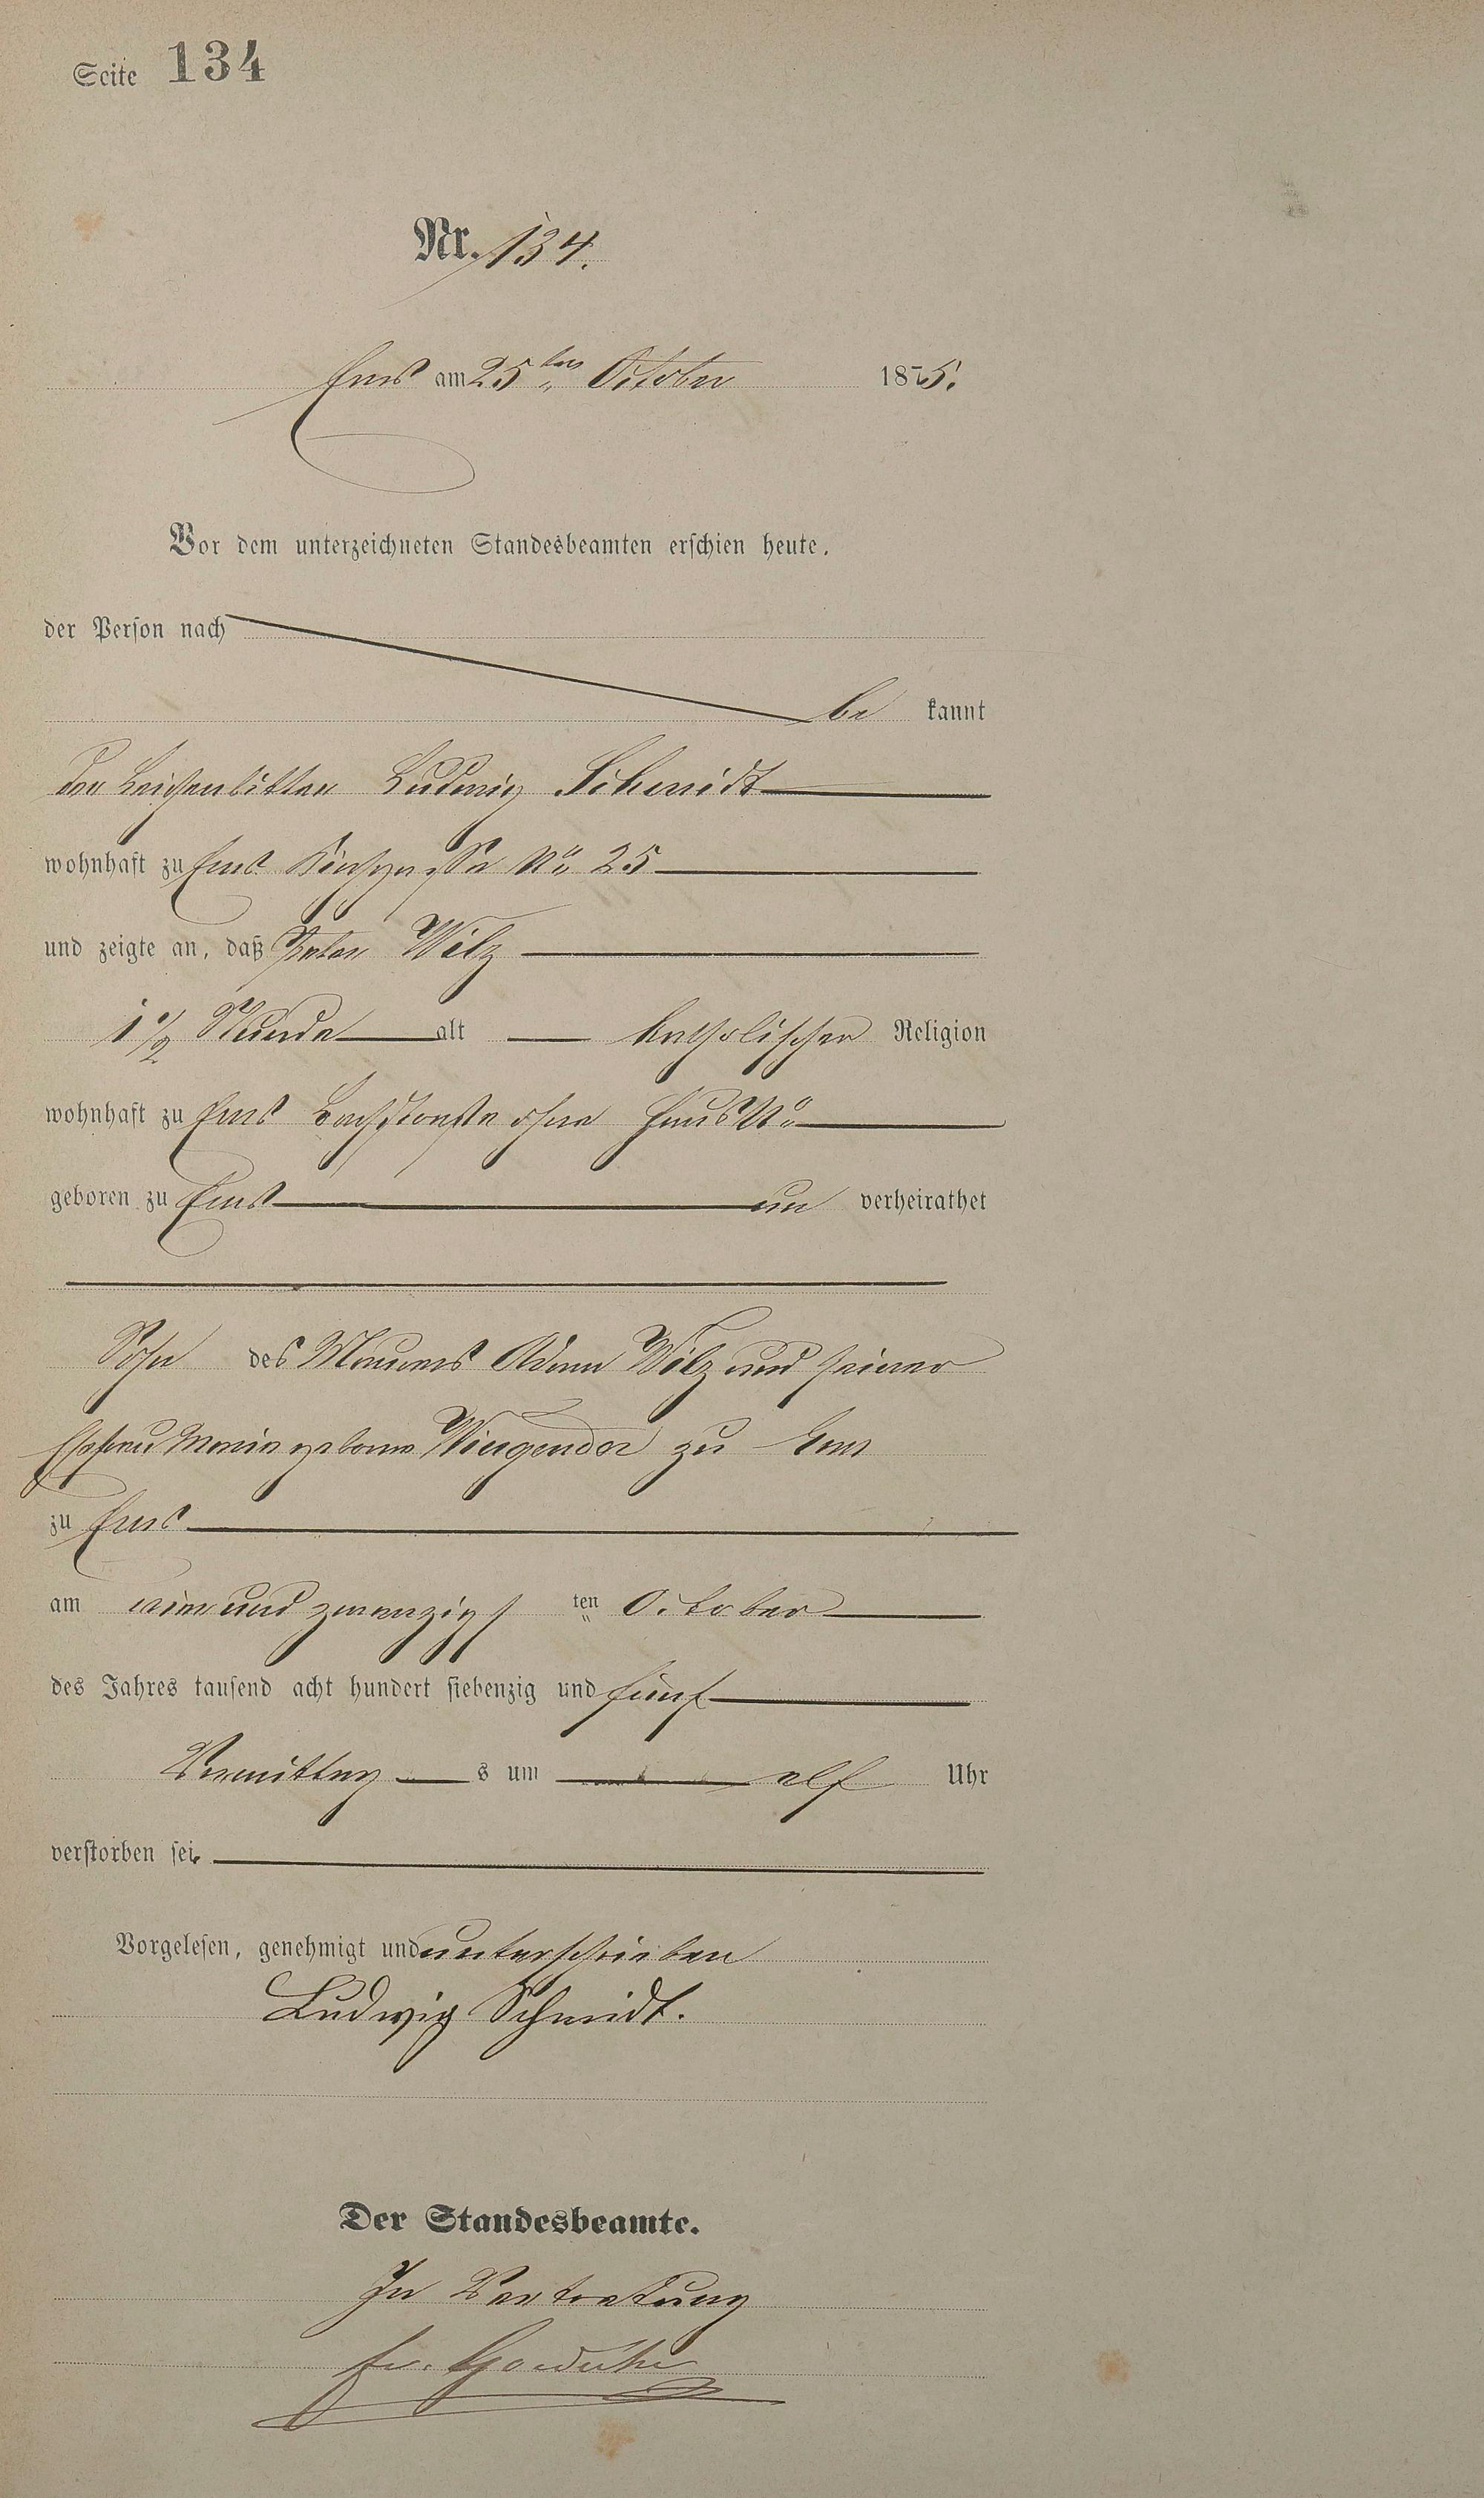 Seite 134
Nr. 134.
Ems am 25ten October 1875.
Vor dem unterzeichneten Standesbeamten erschien heute,
der Person nach
be kannt
der Leichenbitter Ludwig Schmidt
wohnhaft zu Ems Kirchgasse No 25
und zeigte an, daß Peter Wilz
1 1/2 Stunde alt katholischer Religion
wohnhaft zu Ems Bachstraße ohne Haus No
geboren zu Ems un verheirathet
Sohn des Maurers Adam Wilz und seiner
Ehefrau Maria geborne zu Ems
zu Ems
am und zwanzigs ten October
des Jahres tausend acht hundert siebenzig und fünf
Vormittag s um elf Uhr
verstorben sei.
Vorgelesen, genehmigt und unterschrieben
Ludwig Schmidt.
Der Standesbeamte.
In Vertretung